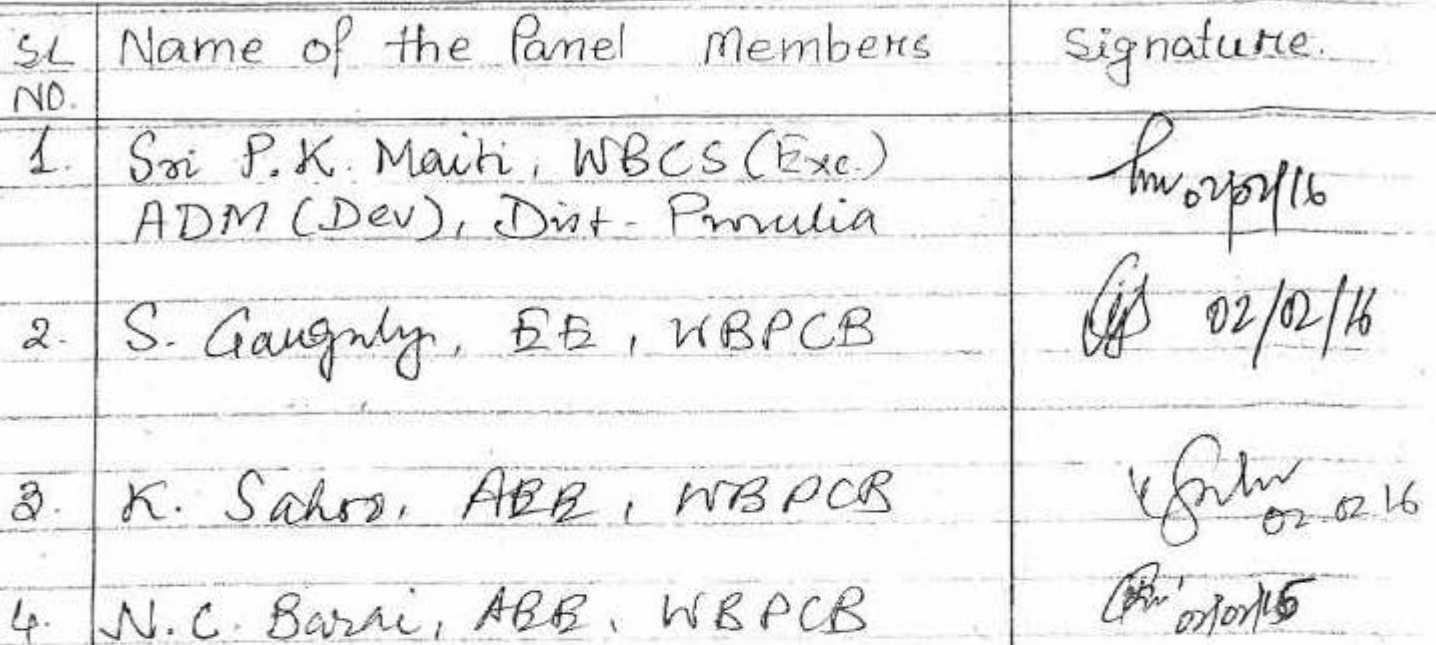 SL NO. Name of the Panel Members Signature.
1. Sri P.K. Maiti, WBCS (Exc.)
ADM (Dev), Dist- Purulia 02/02/16
2. S. Ganguly, EE, WBPCB 02/02/16
3. K. Sahoo, AEE, WBPCB 02.02.16
4. N.C. Barai, AEE, WBPCB